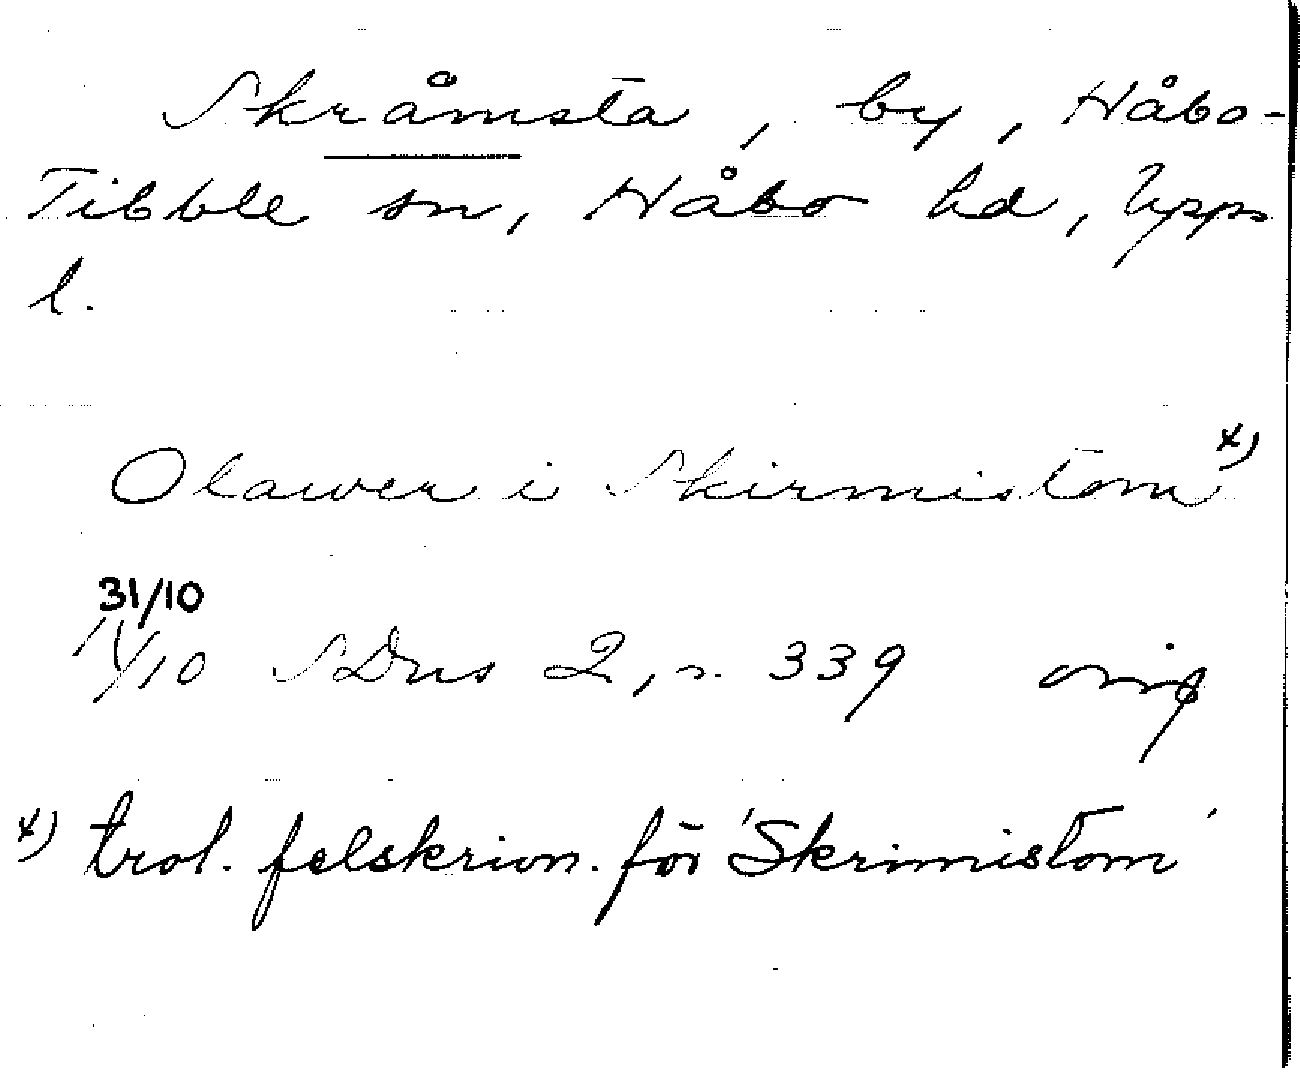 Skråmsta, by, Håbo-
Tibble sn, Håbo hd, Upps
l.
Olawer i Skirmistom x)
31/10
14/10 SDns 2, n. 339 orig
x) trol. felskrivn. för 'Skrimistom'